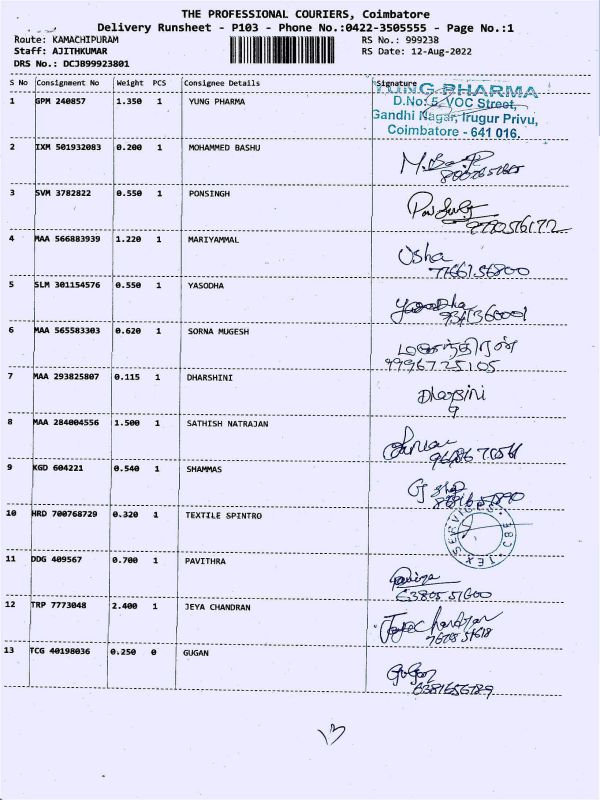 THE PROFESSIONAL COURIERS, Coimbatore
Delivery Runsheet - P103 - Phone No.:0422-3505555 - Page No.:1
Route: KAMACHIPURAM RS No.: 999238
Staff: AJITHKUMAR RS Date: 12-Aug-2022
DRS No.: DCJB99923801
S No Consignment No Weight PCS Consignee Details Signature
1 GPM 240857 1.350 1 YUNG PHARMA
YUNG PHARMA
D.No: 5, VOC Street,
Gandhi Nagar, Irugur Privu,
Coimbatore - 641 016.
2 IXM 501932083 0.200 1 MOHAMMED BASHU
3 SVM 3782822 0.550 1 PONSINGH
4 MAA 566883939 1.220 1 MARIYAMMAL
Usha
5 SLM 301154576 0.550 1 YASODHA
Yasodha
6 MAA 565583303 0.620 1 SORNA MUGESH
7 MAA 293825807 0.115 1 DHARSHINI
8 MAA 284004556 1.500 1 SATHISH NATRAJAN
9 KGD 604221 0.540 1 SHAMMAS
10 HRD 700768729 0.320 1 TEXTILE SPINTRO
11 DDG 409567 0.700 1 PAVITHRA
12 TRP 7773048 2.400 1 JEYA CHANDRAN
13 TCG 40198036 0.250 0 GUGAN
13